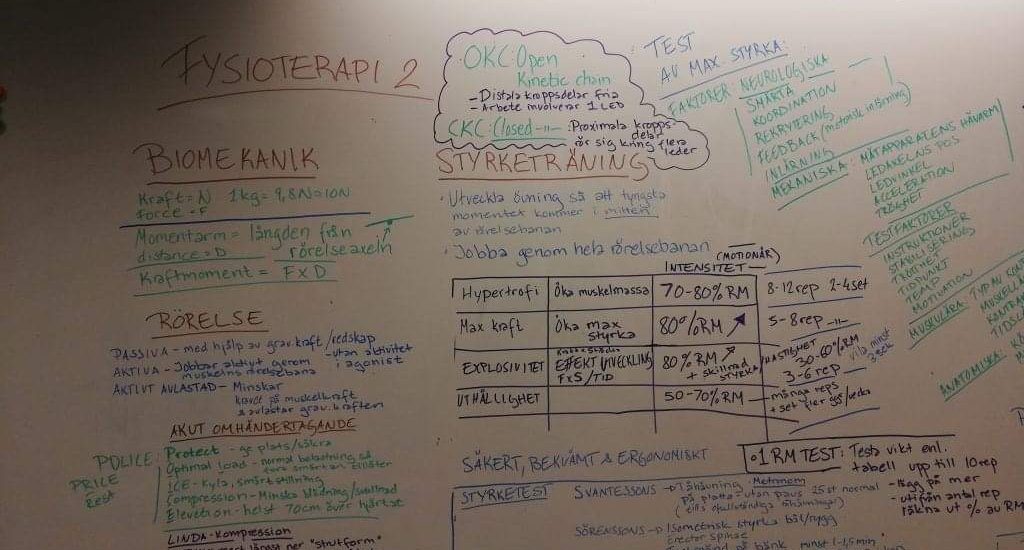 FYSIOTERAPI 2
OKC: Open
Kinetic chain
- Distala kroppsdelar fria
- Arbete involverar 1 LED
CKC: Closed -11- : Proximala kropps-
delar
rör sig kring flera
leder
TEST
AV MAX STYRKA:
FAKTORER NEUROLOGISKA
SMÄRTA
KOORDINATION
REKRYTERING
FEEDBACK (motorisk inlärning)
INLÄRNING
MEKANISKA: MÄTAPPARATENS HÄVARM
LEDAXELNS POS
LEDVINKEL
ACCELERATION
TRÖGHET
TESTFAKTORER
INSTRUKTIONER
STABILISERING
TRÖTTHET
TEMP
TIDPUNKT
MOTIVATION
MUSKULÄRA: TYP AV
ANATOMISKA:
BIOMEKANIK
Kraft = N 1kg = 9,8N = 10N
force = F
Momentarm = längden från
distance = D rörelseaxeln
Kraftmoment = F x D
RÖRELSE
PASSIVA - med hjälp av grav.kraft / redskap
- utan aktivitet
AKTIVA - Jobbar aktivt genom i agonist
muskelns rörelsebana
AKTIVT AVLASTAD - Minskar
kravet på muskelkraft
& avlastar grav.kraften
AKUT OMHÄNDERTAGANDE
POLICE: Protect - ge plats/säkra
PRICE Optimal load - normal belastning så
Rest fort smärtan tillåter
ICE - Kyla, smärtstillning
Compression - Minska blödning/svullnad
Elevation - helst 70cm över hjärtat
LINDA - Kompression
längst ner "strutform"
STYRKETRÄNING
· Utveckla övning så att tyngsta
momentet kommer i mitten
av rörelsebanan
· Jobba genom hela rörelsebanan
(MOTIONÄR)
INTENSITET
Hypertrofi Öka muskelmassa 70-80% RM 8-12 rep 2-4 set
Max kraft Öka max styrka 80% RM 5-8 rep -11-
EXPLOSIVITET EFFEKT UTVECKLING F x S / TID 80% RM + skillnad STYRKA HASTIGHET 30-60% RM 3-6 rep vila minst
UTHÅLLIGHET 50-70% RM många reps + set fler ggr/vecka
SÄKERT, BEKVÄMT & ERGONOMISKT
· 1 RM TEST: Testa vikt enl.
tabell upp till 10 rep
- lägg på mer
- utifrån antal rep
räkna ut % av RM
STYRKETEST
SVANTESSONS → Tåhävning. Metronom
på platta utan paus 25 st normal
SÖRENSSONS → Isometrisk styrka bål/rygg
erector spinae
på bänk minst 1-1,5 min